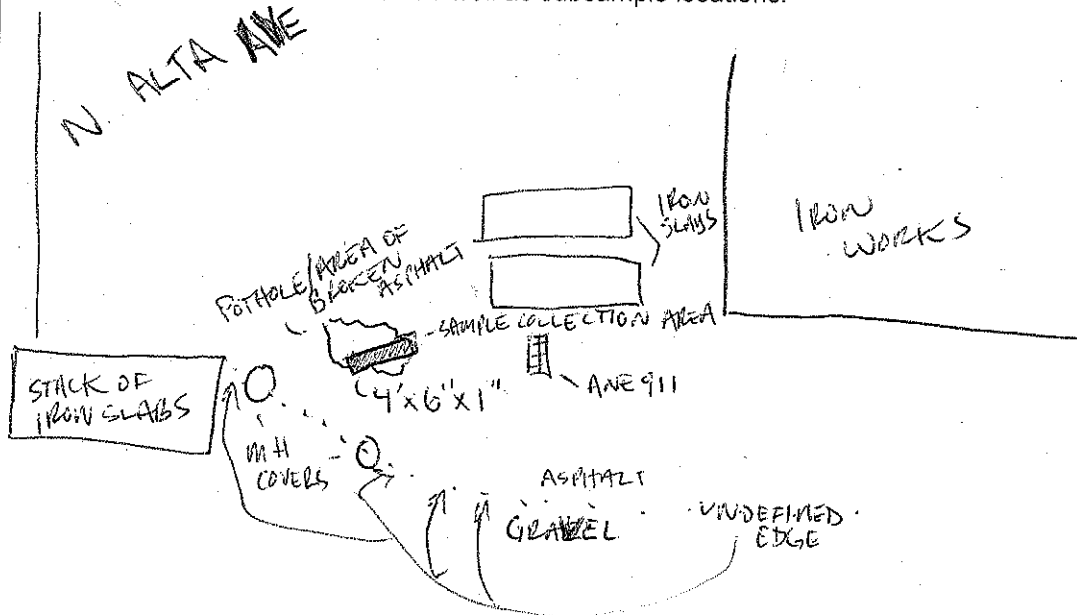 subsample locations.
N. ALTA AVE
IRON
SLABS
IRON
WORKS
POTHOLE/AREA OF
BROKEN
ASPHALT
-SAMPLE COLLECTION AREA
STACK OF
IRON SLABS
4'x6"x1"
ANE911
MH
COVERS
ASPHALT
GRAVEL
UNDEFINED
EDGE